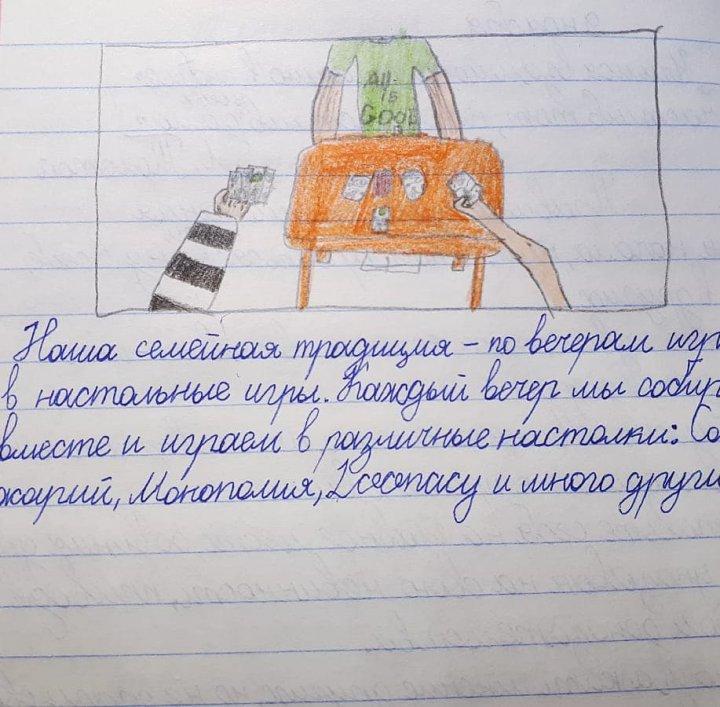 All
is
GOOD
Наша семейная традиция – по вечерам игр
в настольные игры. Каждый вечер мы собир
вместе и играем в различные настолки:
Монополия, и много други